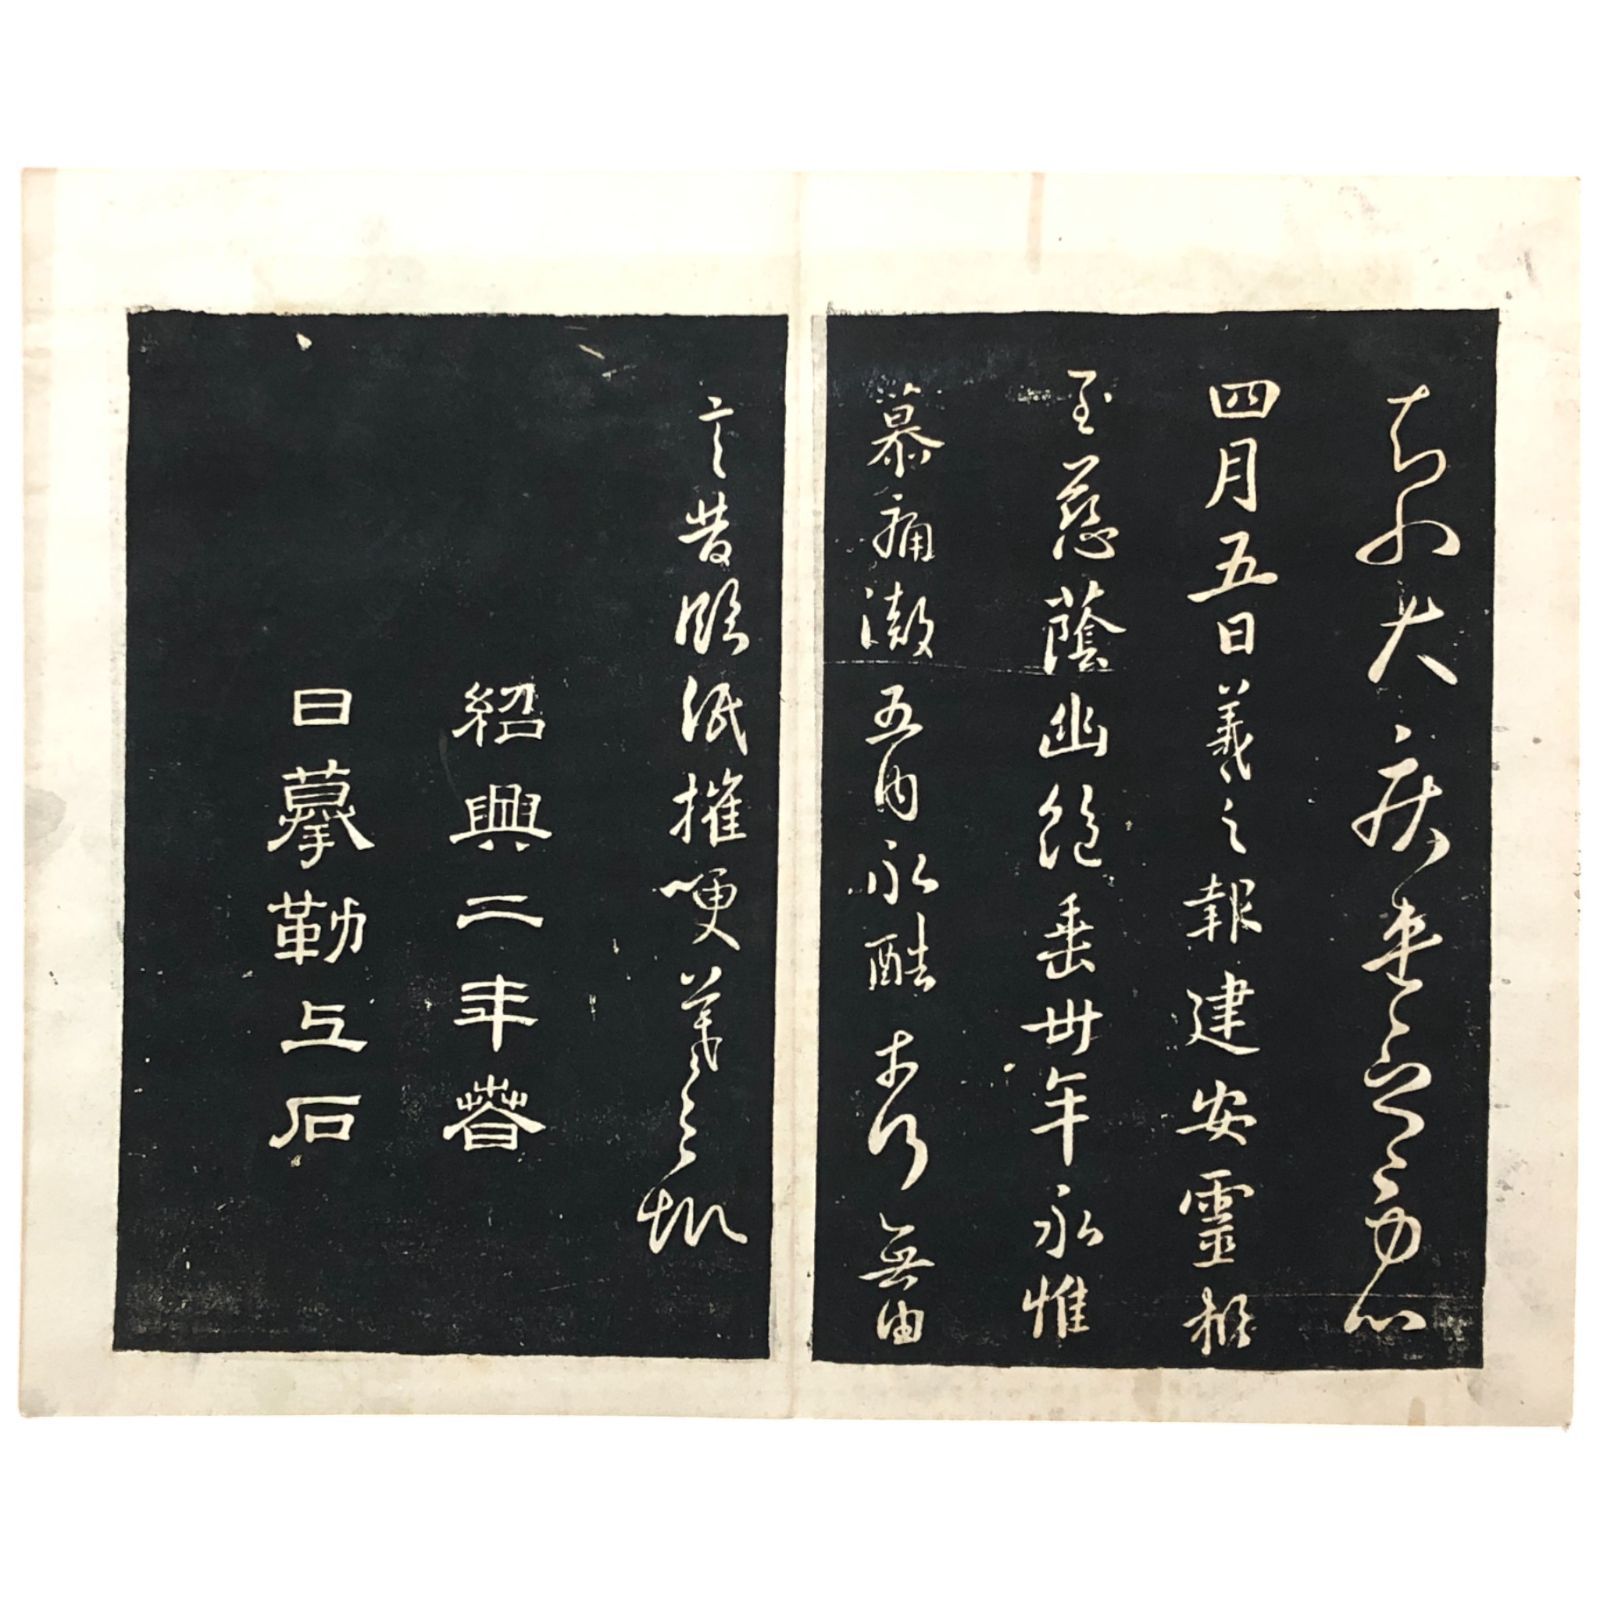 大疾
四月五日羲之報建安靈柩
至慈蔭幽絕垂卅年永惟
慕痛徹五內永酷奈何無由
言昔臨紙摧哽羲之報
紹興二年萅
日摹勒上石